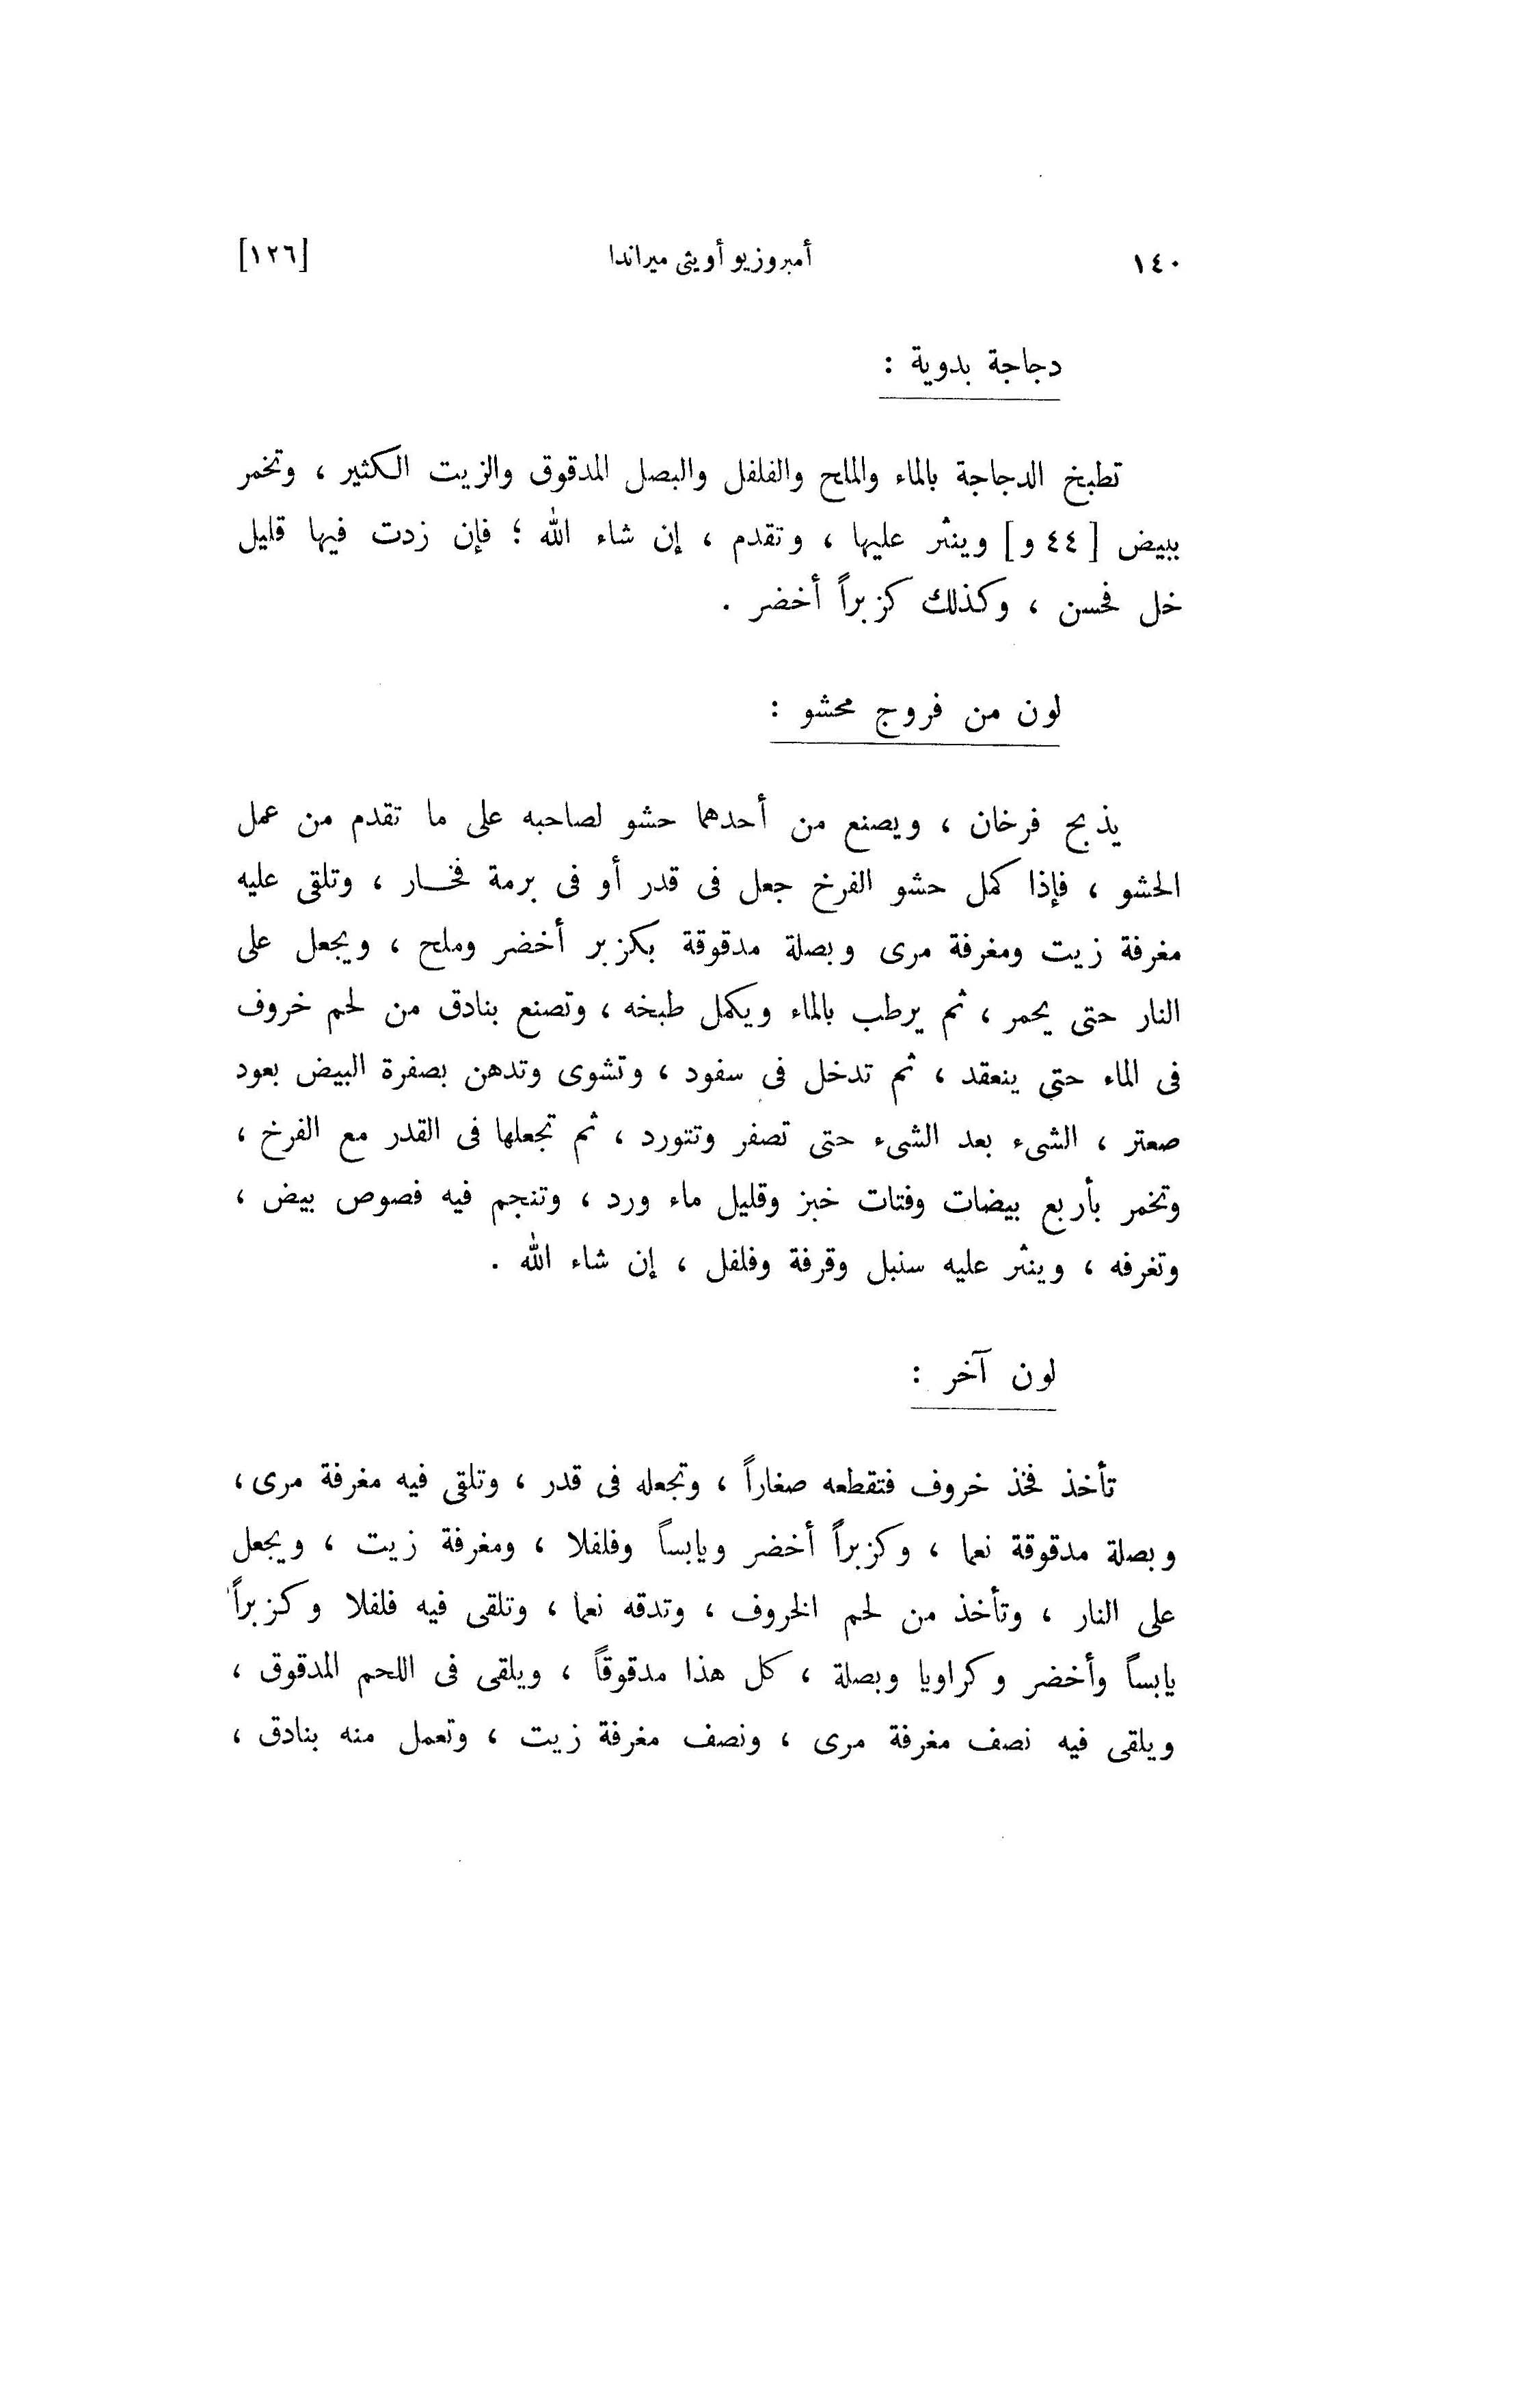 ١٤٠ أمبروزيو أويثى ميراندا [١٢٦]
دجاجة بدوية :
تطبخ الدجاجة بالماء والملح والفلفل والبصل المدقوق والزيت الكثير ، وتخمر
ببيض [ ٤٤ و ] وينثر عليها ، وتقدم ، إن شاء الله ؛ فإن زدت فيها قليل
خل فحسن ، وكذلك كزبراً أخضر .
لون من فروج محشو :
يذبح فرخان ، ويصنع من أحدهما حشو لصاحبه على ما تقدم من عمل
الحشو ، فإذا كمل حشو الفرخ جعل فى قدر أو فى برمة فخــار ، وتلقى عليه
مغرفة زيت ومغرفة مرى وبصلة مدقوقة بكزبر أخضر وملح ، ويجعل على
النار حتى يحمر ، ثم يرطب بالماء ويكمل طبخه ، وتصنع بنادق من لحم خروف
فى الماء حتى ينعقد ، ثم تدخل فى سفود ، وتشوى وتدهن بصفرة البيض بعود
صعتر ، الشىء بعد الشىء حتى تصفر وتتورد ، ثم تجعلها فى القدر مع الفرخ ،
وتخمر بأربع بيضات وفتات خبز وقليل ماء ورد ، وتنجم فيه فصوص بيض ،
وتغرفه ، وينثر عليه سنبل وقرفة وفلفل ، إن شاء الله .
لون آخر :
تأخذ فخذ خروف فتقطعه صغاراً ، وتجعله فى قدر ، وتلقى فيه مغرفة مرى ،
وبصلة مدقوقة نعما ، وكزبراً أخضر ويابساً وفلفلا ، ومغرفة زيت ، ويجعل
على النار ، وتأخذ من لحم الخروف ، وتدقه نعما ، وتلقى فيه فلفلا وكزبراً
يابساً وأخضر وكراويا وبصلة ، كل هذا مدقوقاً ، ويلقى فى اللحم المدقوق ،
ويلقى فيه نصف مغرفة مرى ، ونصف مغرفة زيت ، وتعمل منه بنادق ،